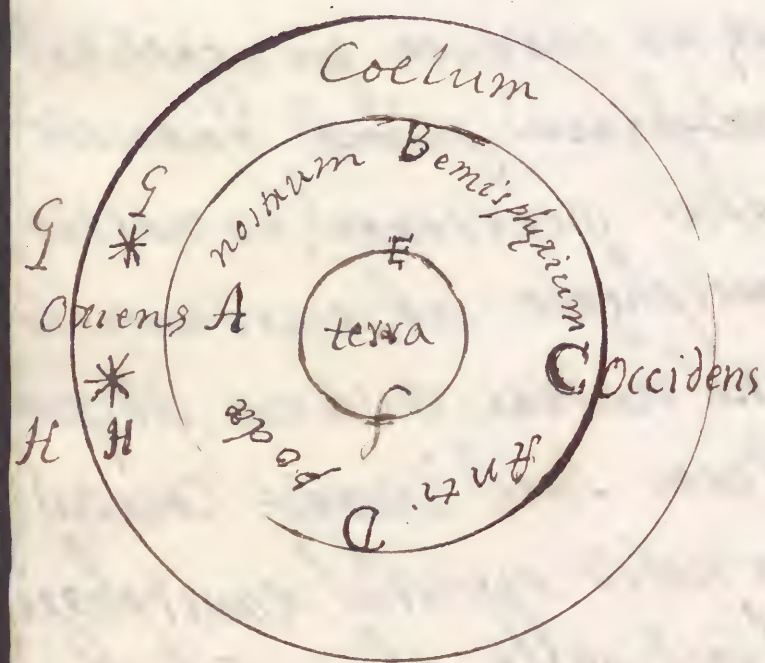 Coelum
nostrum B emisphærium
G G
E
Oriens A
terra
C Occidens
H H
f
Anti. podæ
D